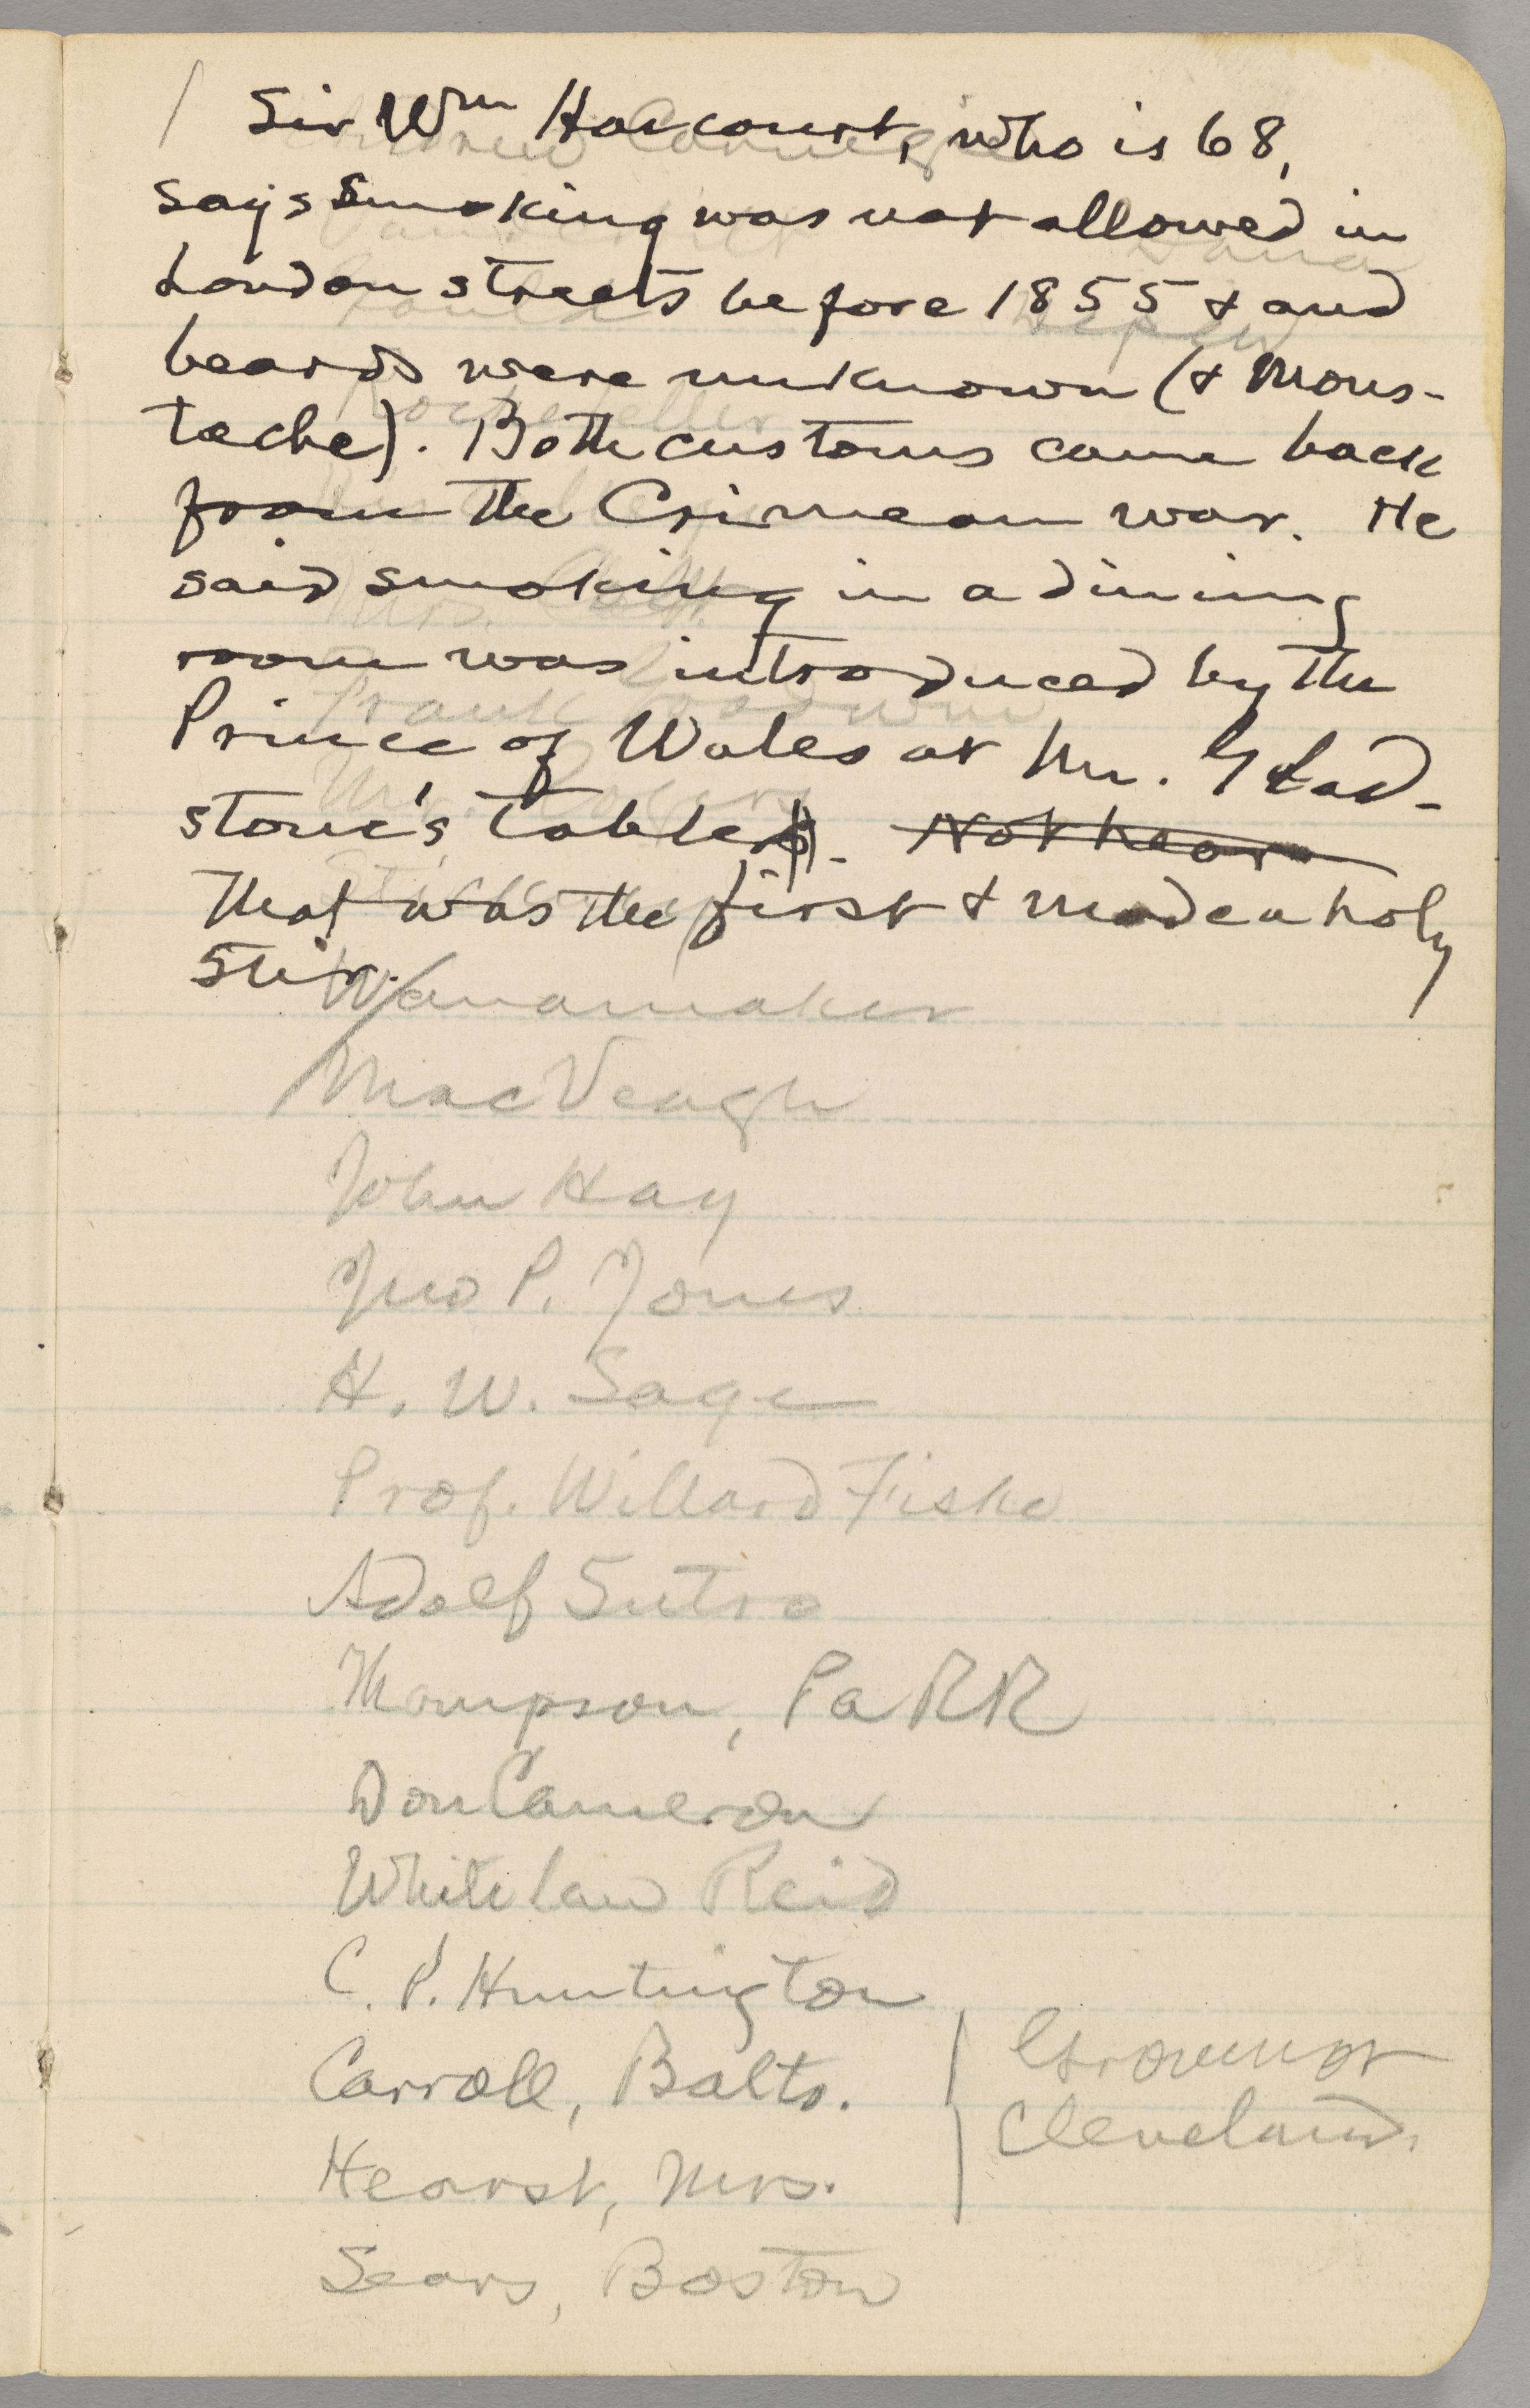 / Sir Wm Harcourt, who is 68,
says smoking was not allowed in
London streets before 1855 & and
beards were unknown (& mous-
tache). Both customs came back
from the Crimean war. He
said smoking in a dining
room was introduced by the
Prince of Wales at Mr. Glad-
stone's table. Not hear
That was the first & made a holy
stir.
Andrew Carnegie
Dana
Depew
Rockefeller
Mrs. Colt
Frank Goodwin
Mr. Rogers
Wanamaker
MacVeagh
John Hay
Jno P. Jones
H. W. Sage
Prof. Willard Fiske
Adolf Sutro
Thompson, Pa RR
Don Cameron
Whitelaw Reid
C. P. Huntington
Carroll, Balto.
Hearst, Mrs.
Sears, Boston
Governor
Cleveland.